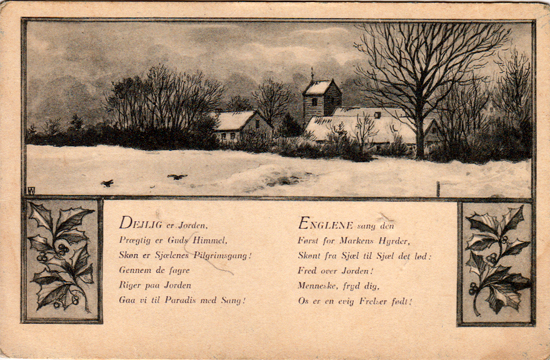 DEJLIG er Jorden,
Prægtig er Guds Himmel,
Skøn er Sjælenes Pilgrimsgang!
Gennem de fagre
Riger paa Jorden
Gaa vi til Paradis med Sang!
ENGLENE sang den
Først for Markens Hyrder,
Skønt fra Sjæl til Sjæl det lød:
Fred over Jorden!
Menneske, fryd dig,
Os er en evig Frelser født!